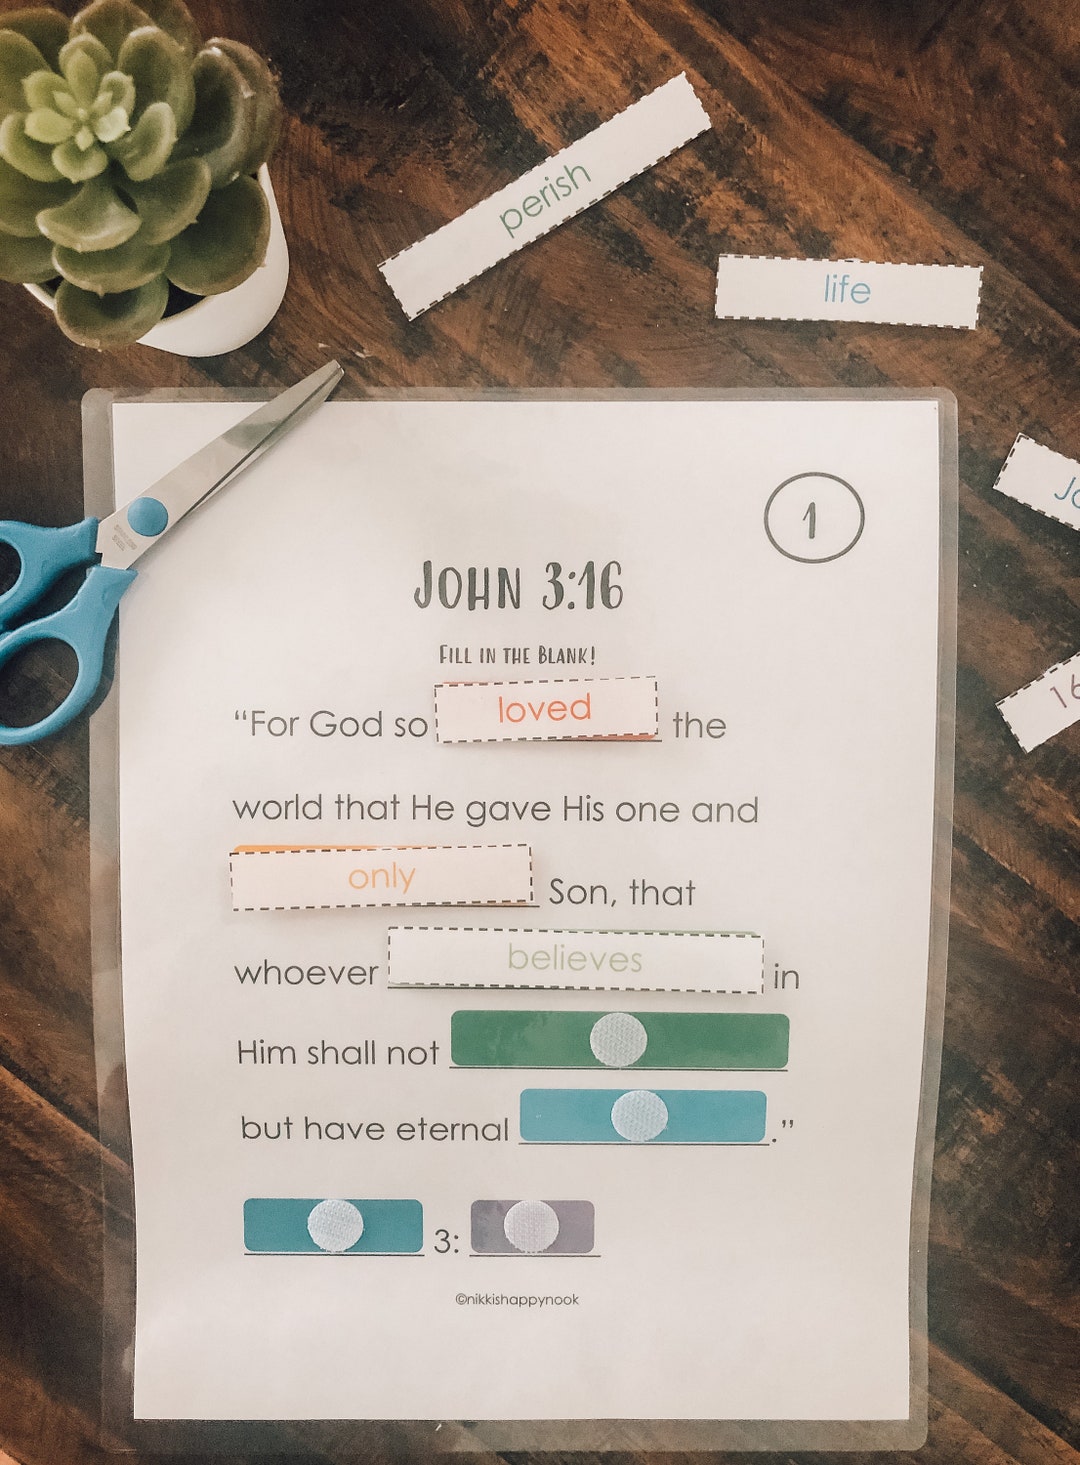 perish
life
1
JOHN 3:16
FILL IN THE BLANK!
“For God so loved the
world that He gave His one and
only Son, that
whoever believes in
Him shall not
but have eternal .”
3:
16
©nikkishappynook